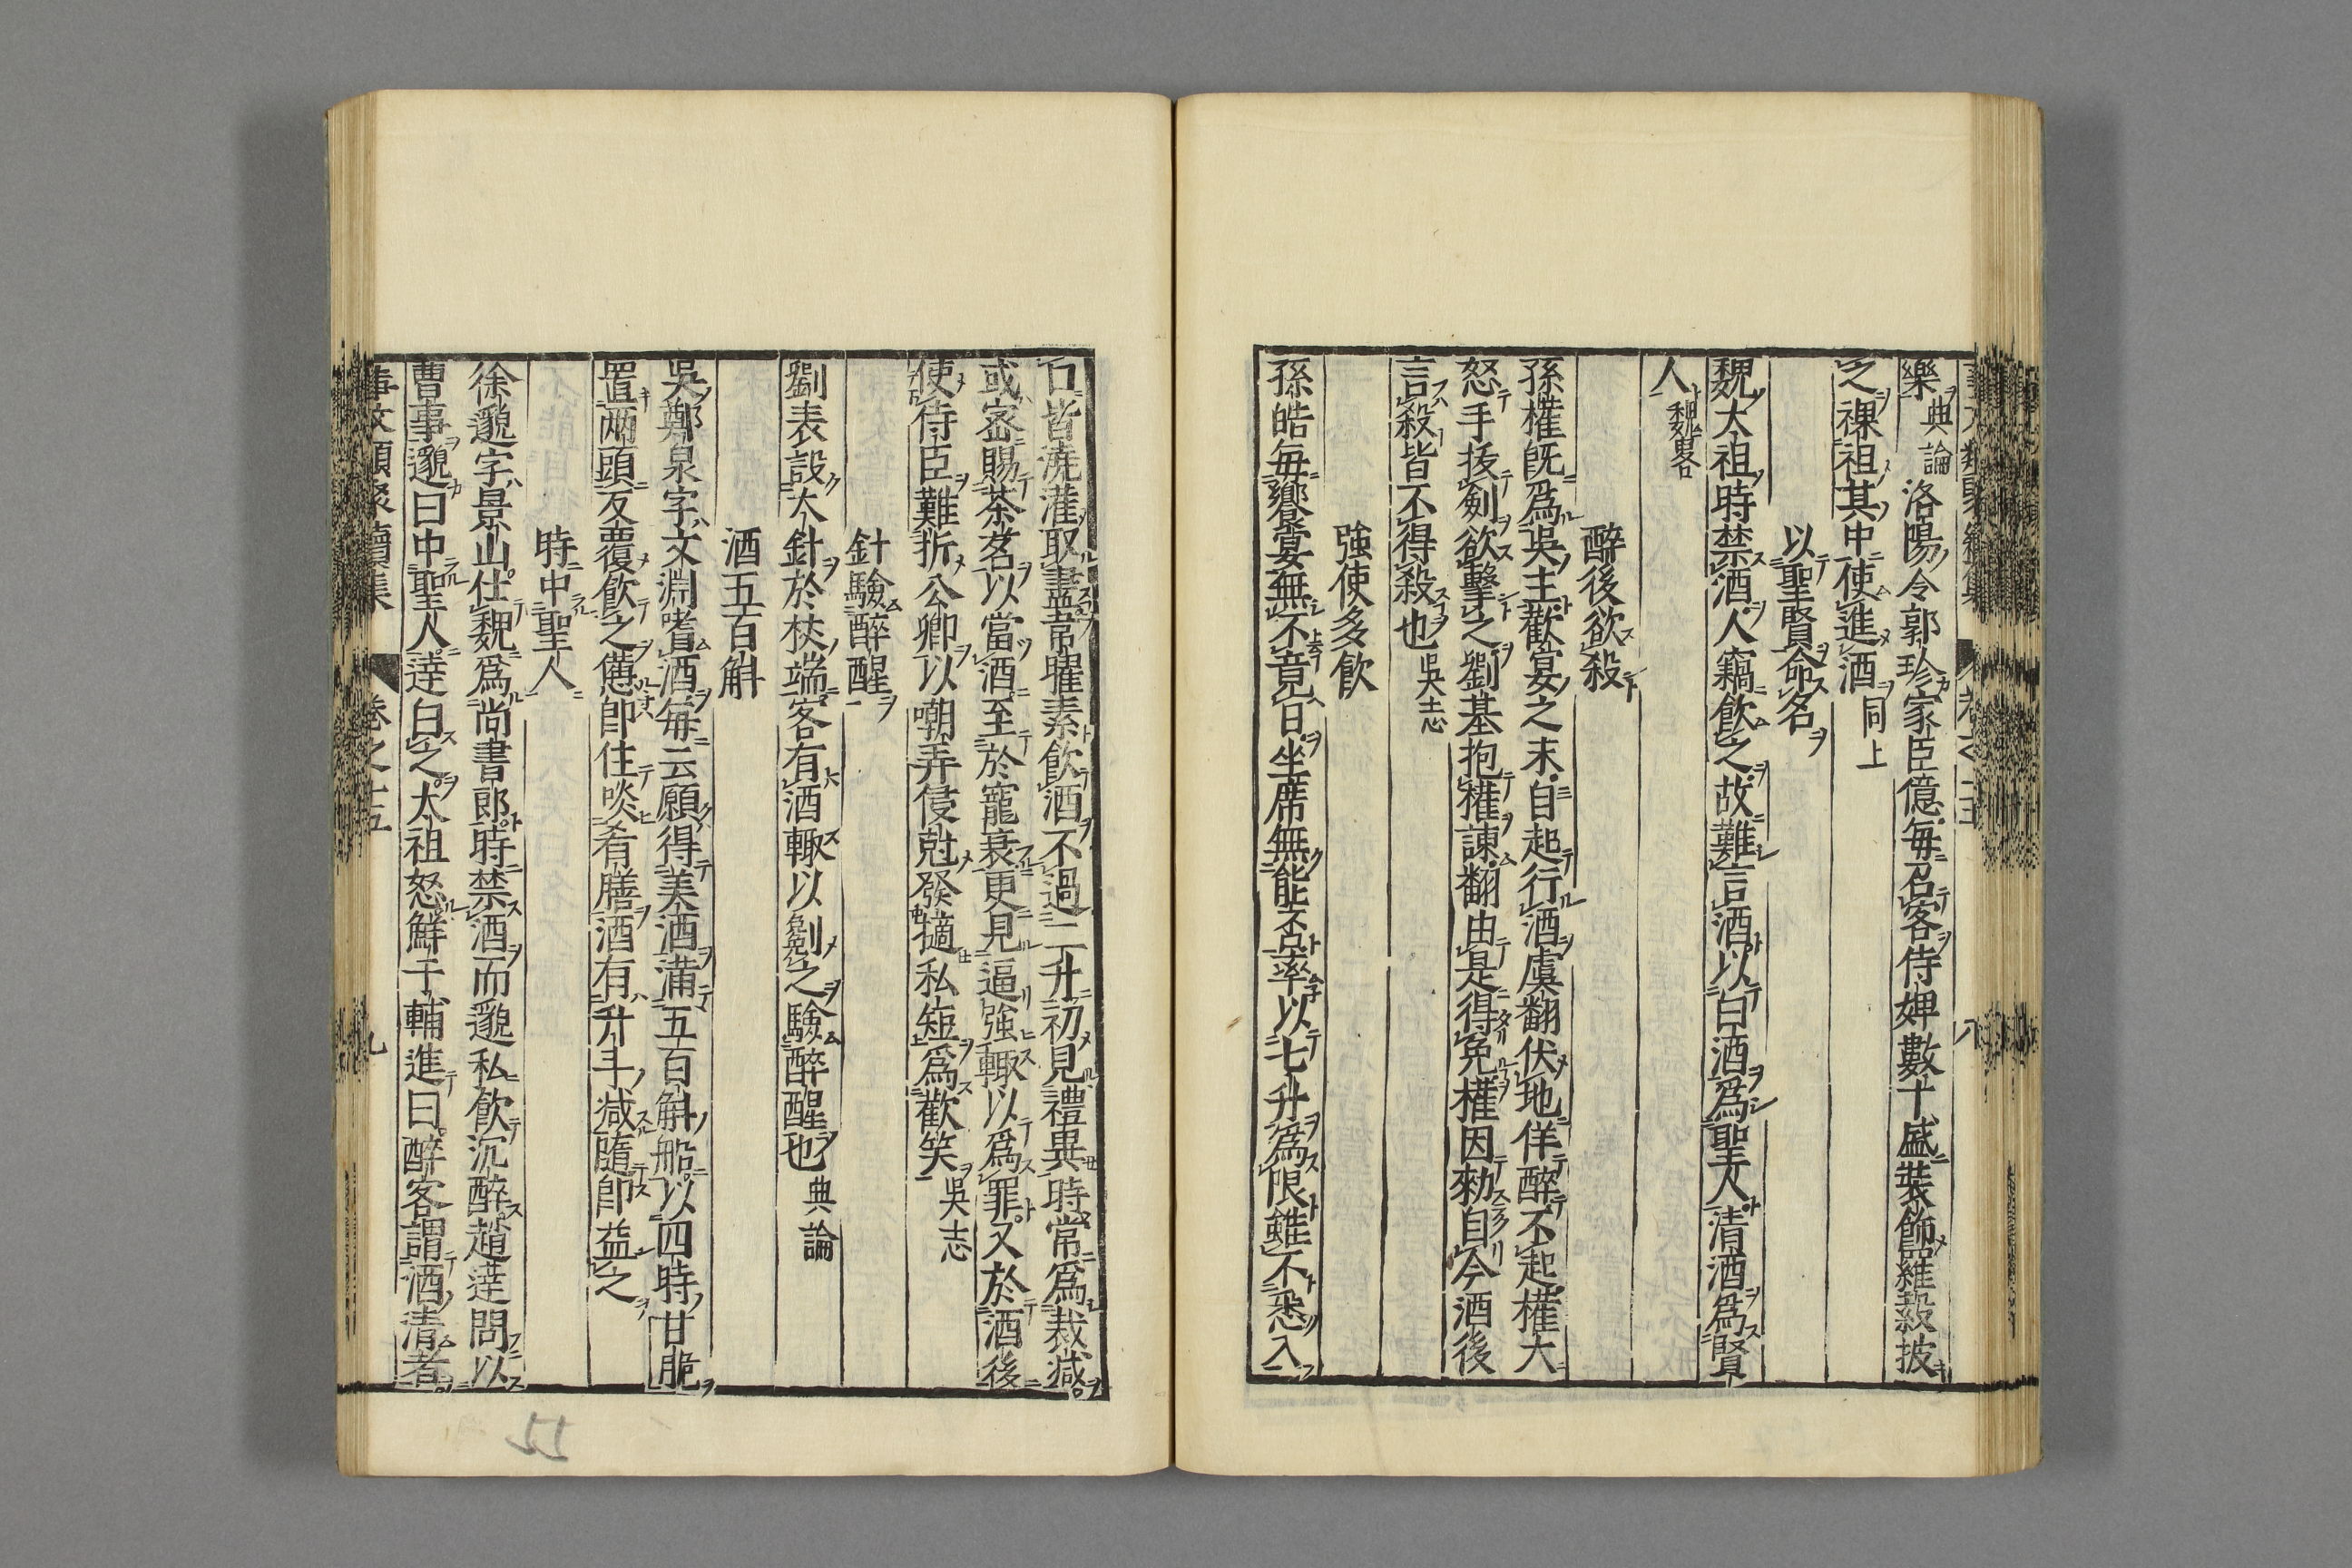 樂典論洛陽令郭珍家臣億毎召客侍婢數十盛裝飾羅縠披
之裸袒其中使進酒同上
以聖賢命名
魏太祖時禁酒人竊飲之故難言酒以白酒爲聖人清酒爲賢
人魏畧
醉後欲殺
孫權既爲吳主歡宴之末自起行酒虞翻伏地佯醉不起權大
怒手拔劍欲擊之劉基抱權諫翻由是得免權因勑自今酒後
言殺皆不得殺也吳志
強使多飲
孫皓毎饗宴無不竟日坐席無能否率以七升爲限雖不悉入
口皆澆灌取盡韋曜素飲酒不過二升初見禮異時常爲裁减
或宻賜茶茗以當酒至於寵衰更見逼強輙以爲罪又於酒後
使侍臣難折公卿以嘲弄侵尅發擿私短爲歡笑吳志
針驗醉醒
劉表設大針於杖端客有酒輙以劖之驗醉醒也典論
酒五百斛
吳鄭泉字文淵嗜酒毎云願得美酒滿五百斛船以四時甘脆
置兩頭反覆飲之憊即住啖肴膳酒有升斗减隨即益之
時中聖人
徐邈字景山仕魏爲尚書郎時禁酒而邈私飲沉醉趙達問以
曹事邈曰中聖人達白之太祖怒鮮于輔進曰醉客謂酒清者
事文類聚續集 卷之十五 九